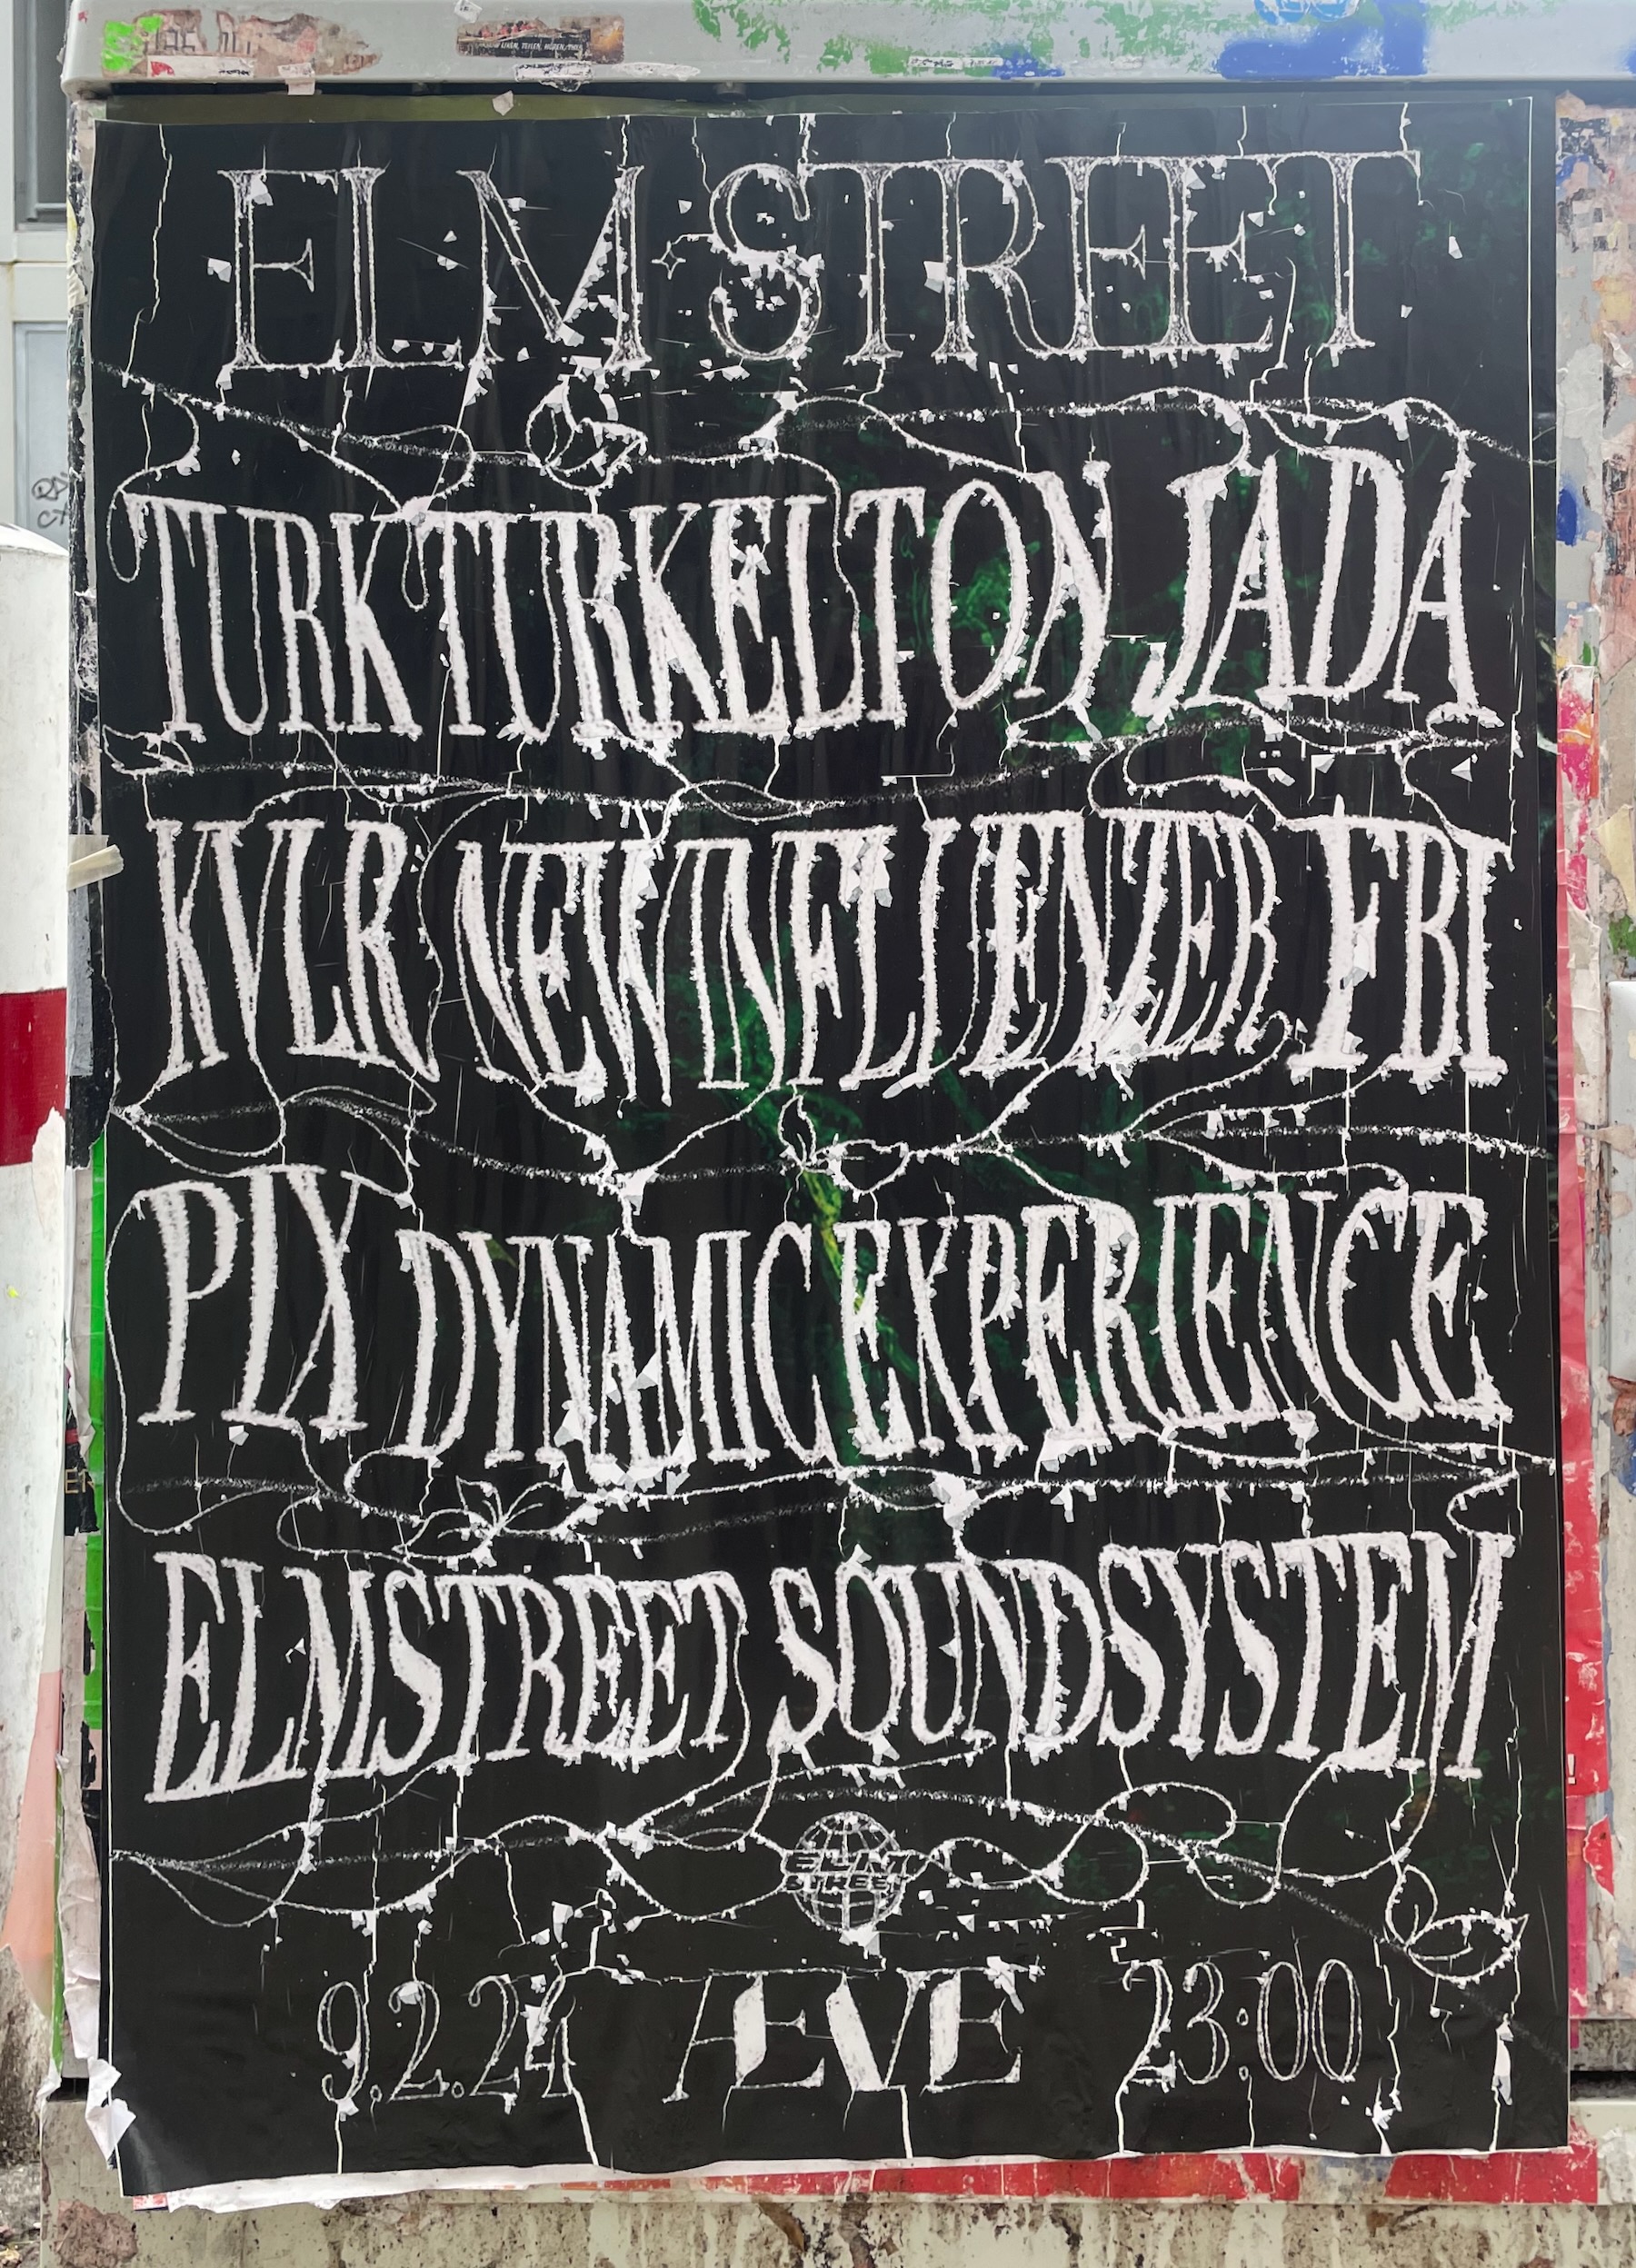 ELM STREET
TURK TURKELTON JADA
KVLR NEWINFLUENZER FBI
PIX DYNAMIC EXPERIENCE
ELMSTREET SOUNDSYSTEM
ELM
STREET
9.2.24 ÆVE 23:00